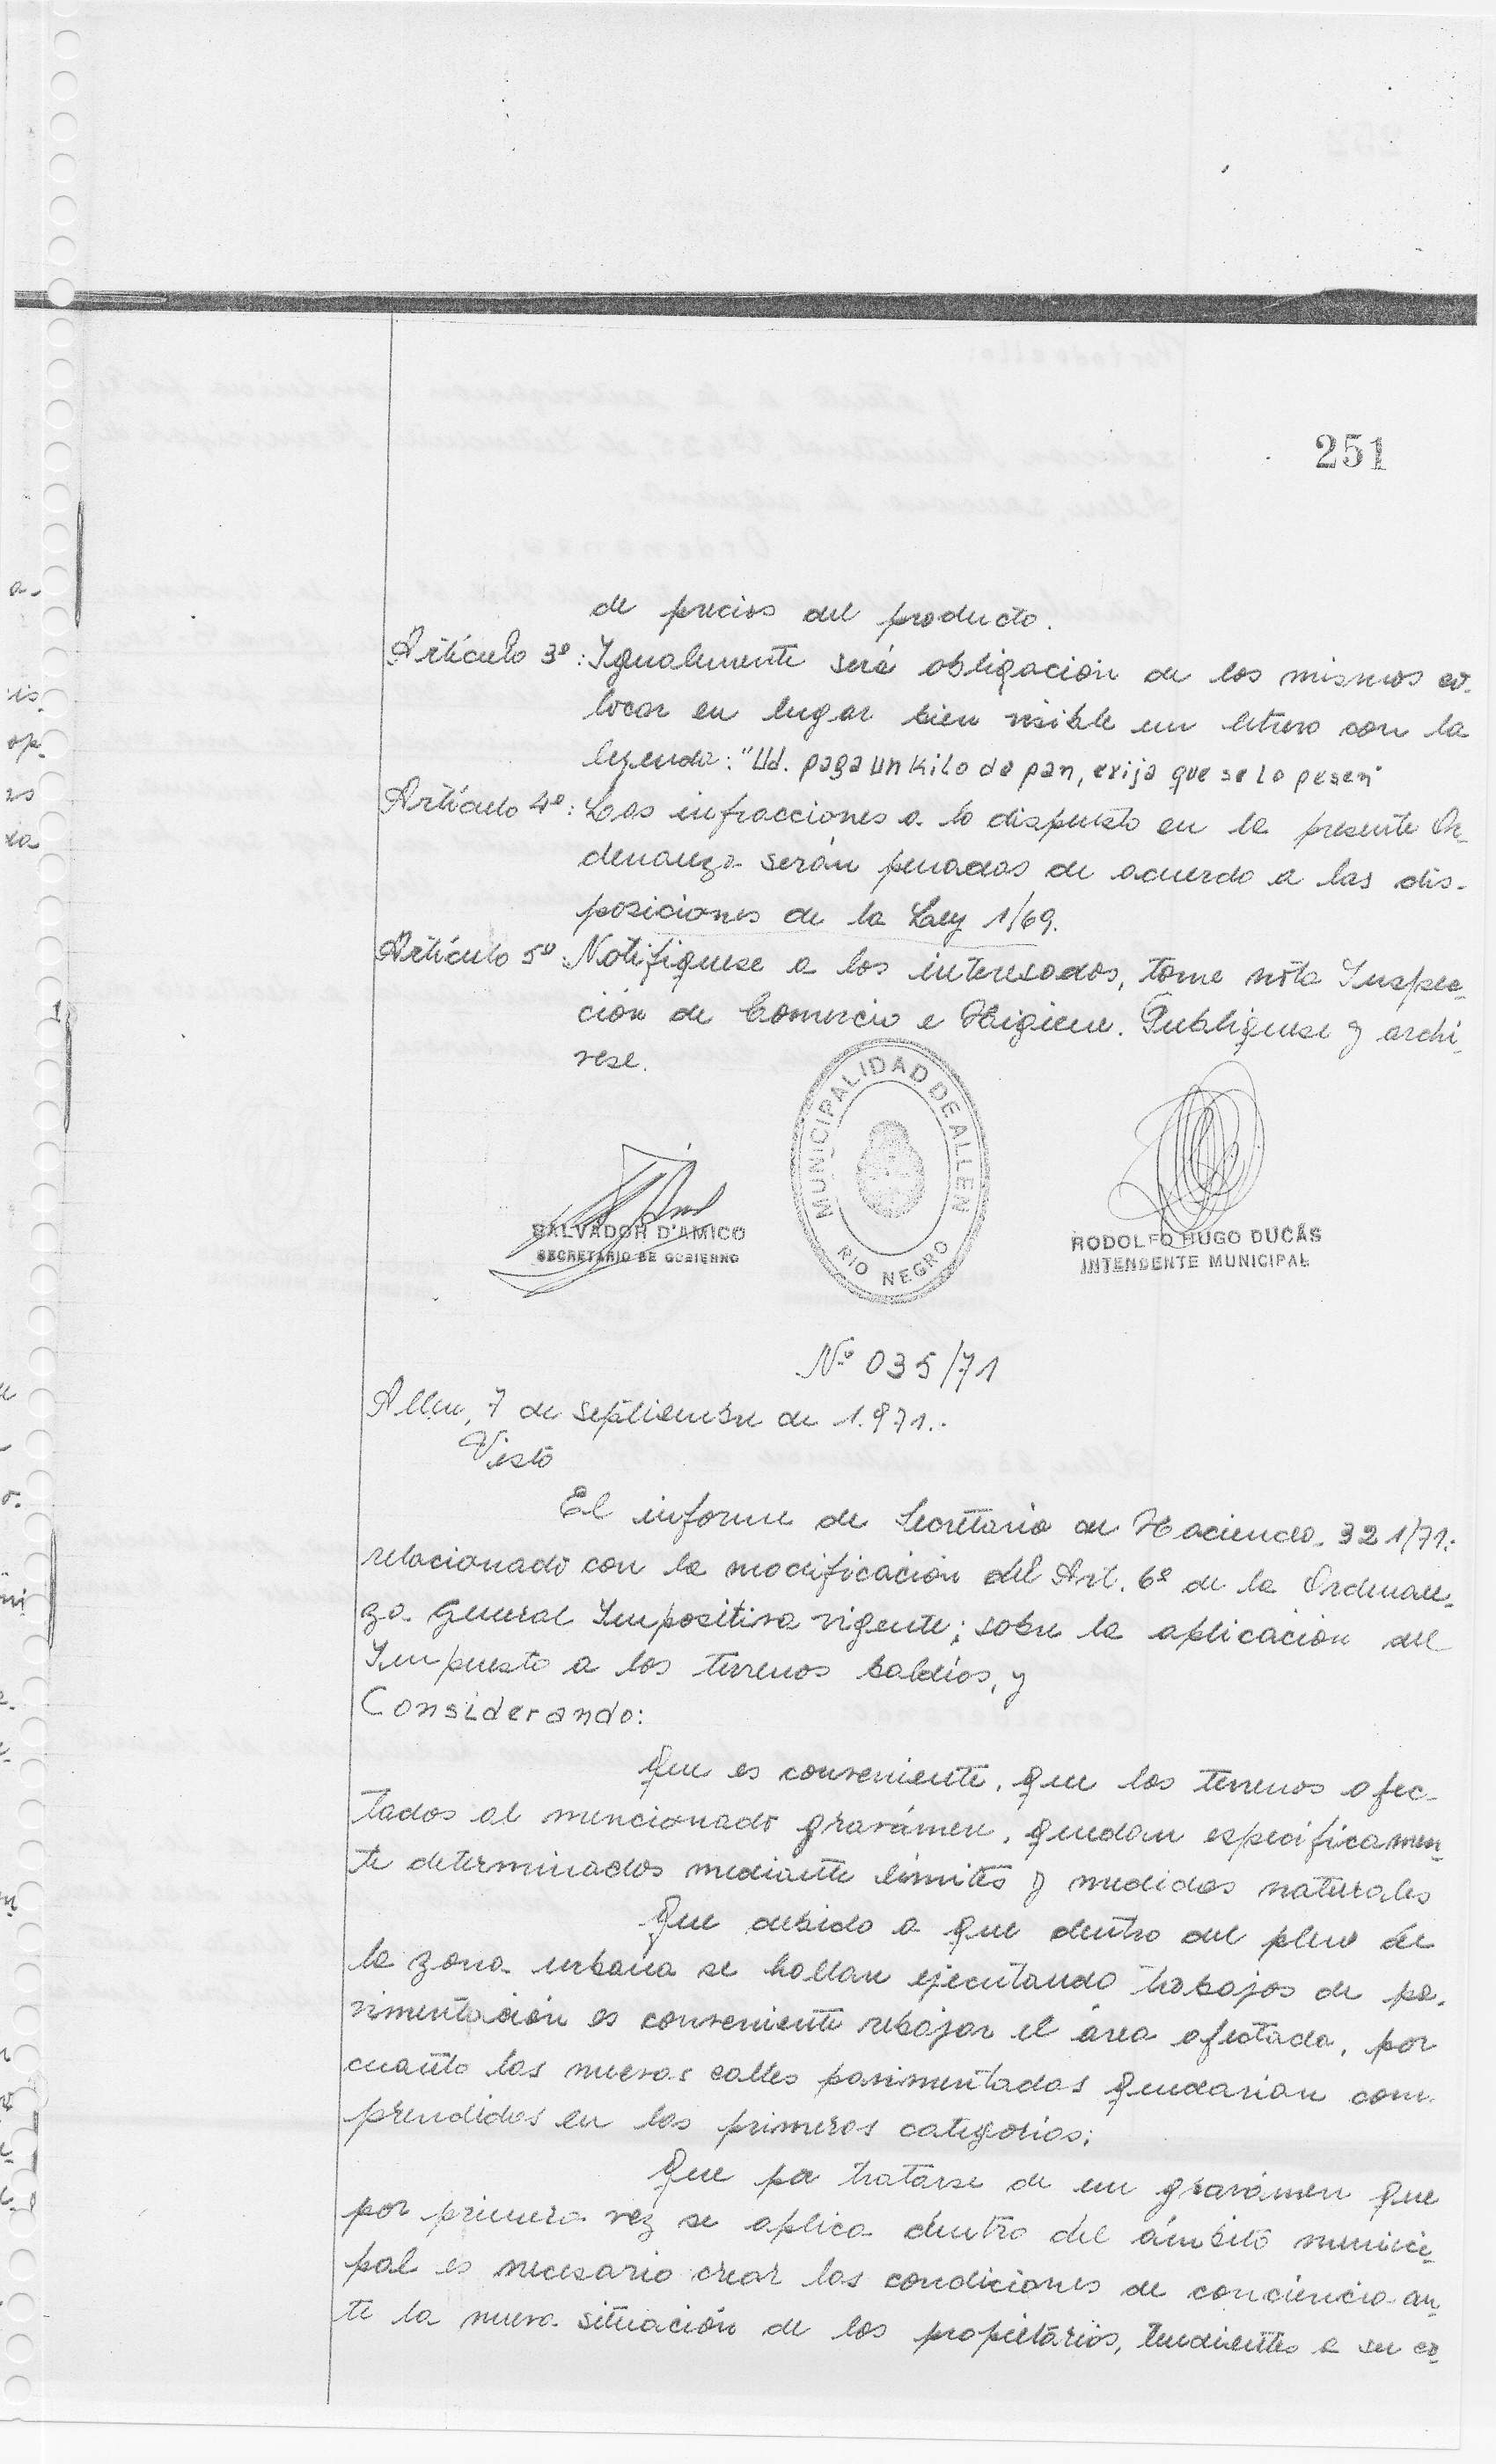 251
de precios del producto.
Artículo 3º: Igualmente será obligación de los mismos co-
locar en lugar bien visible un letrero con la
leyenda: "Ud. paga un kilo de pan, exija que se lo pesen"
Artículo 4º: Las infracciones a lo dispuesto en la presente Or-
denanza serán penadas de acuerdo a las dis-
posiciones de la Ley 1/69.
Artículo 5º: Notifíquese a los interesados, tome nota Inspec-
ción de Comercio e Higiene. Publíquese y archí-
vese.
MUNICIPALIDAD DE ALLEN
RIO NEGRO
SALVADOR D'AMICO
SECRETARIO DE GOBIERNO
RODOLFO HUGO DUCÁS
INTENDENTE MUNICIPAL
Nº 035/71
Allen, 7 de septiembre de 1.971.-
Visto
El informe de Secretaria de Hacienda 321/71.-
relacionado con la modificación del Art. 6º de la Ordenan-
za General Impositiva vigente; sobre la aplicación del
Impuesto a los terrenos baldíos, y
Considerando:
Que es conveniente, que los terrenos afec-
tados al mencionado gravámen, quedan especificamen-
te determinados mediante límites y medidas naturales
Que debido a que dentro del plano de
la zona urbana se hallan ejecutando trabajos de pa-
vimentación es conveniente rebajar el área afectada, por
cuanto las nuevas calles pavimentadas quedarían com-
prendidas en las primeras categorías;
Que por tratarse de un gravámen que
por primera vez se aplica dentro del ámbito munici-
pal es necesario crear las condiciones de conciencia an-
te la nueva situación de los propietarios, tendientes a su co-